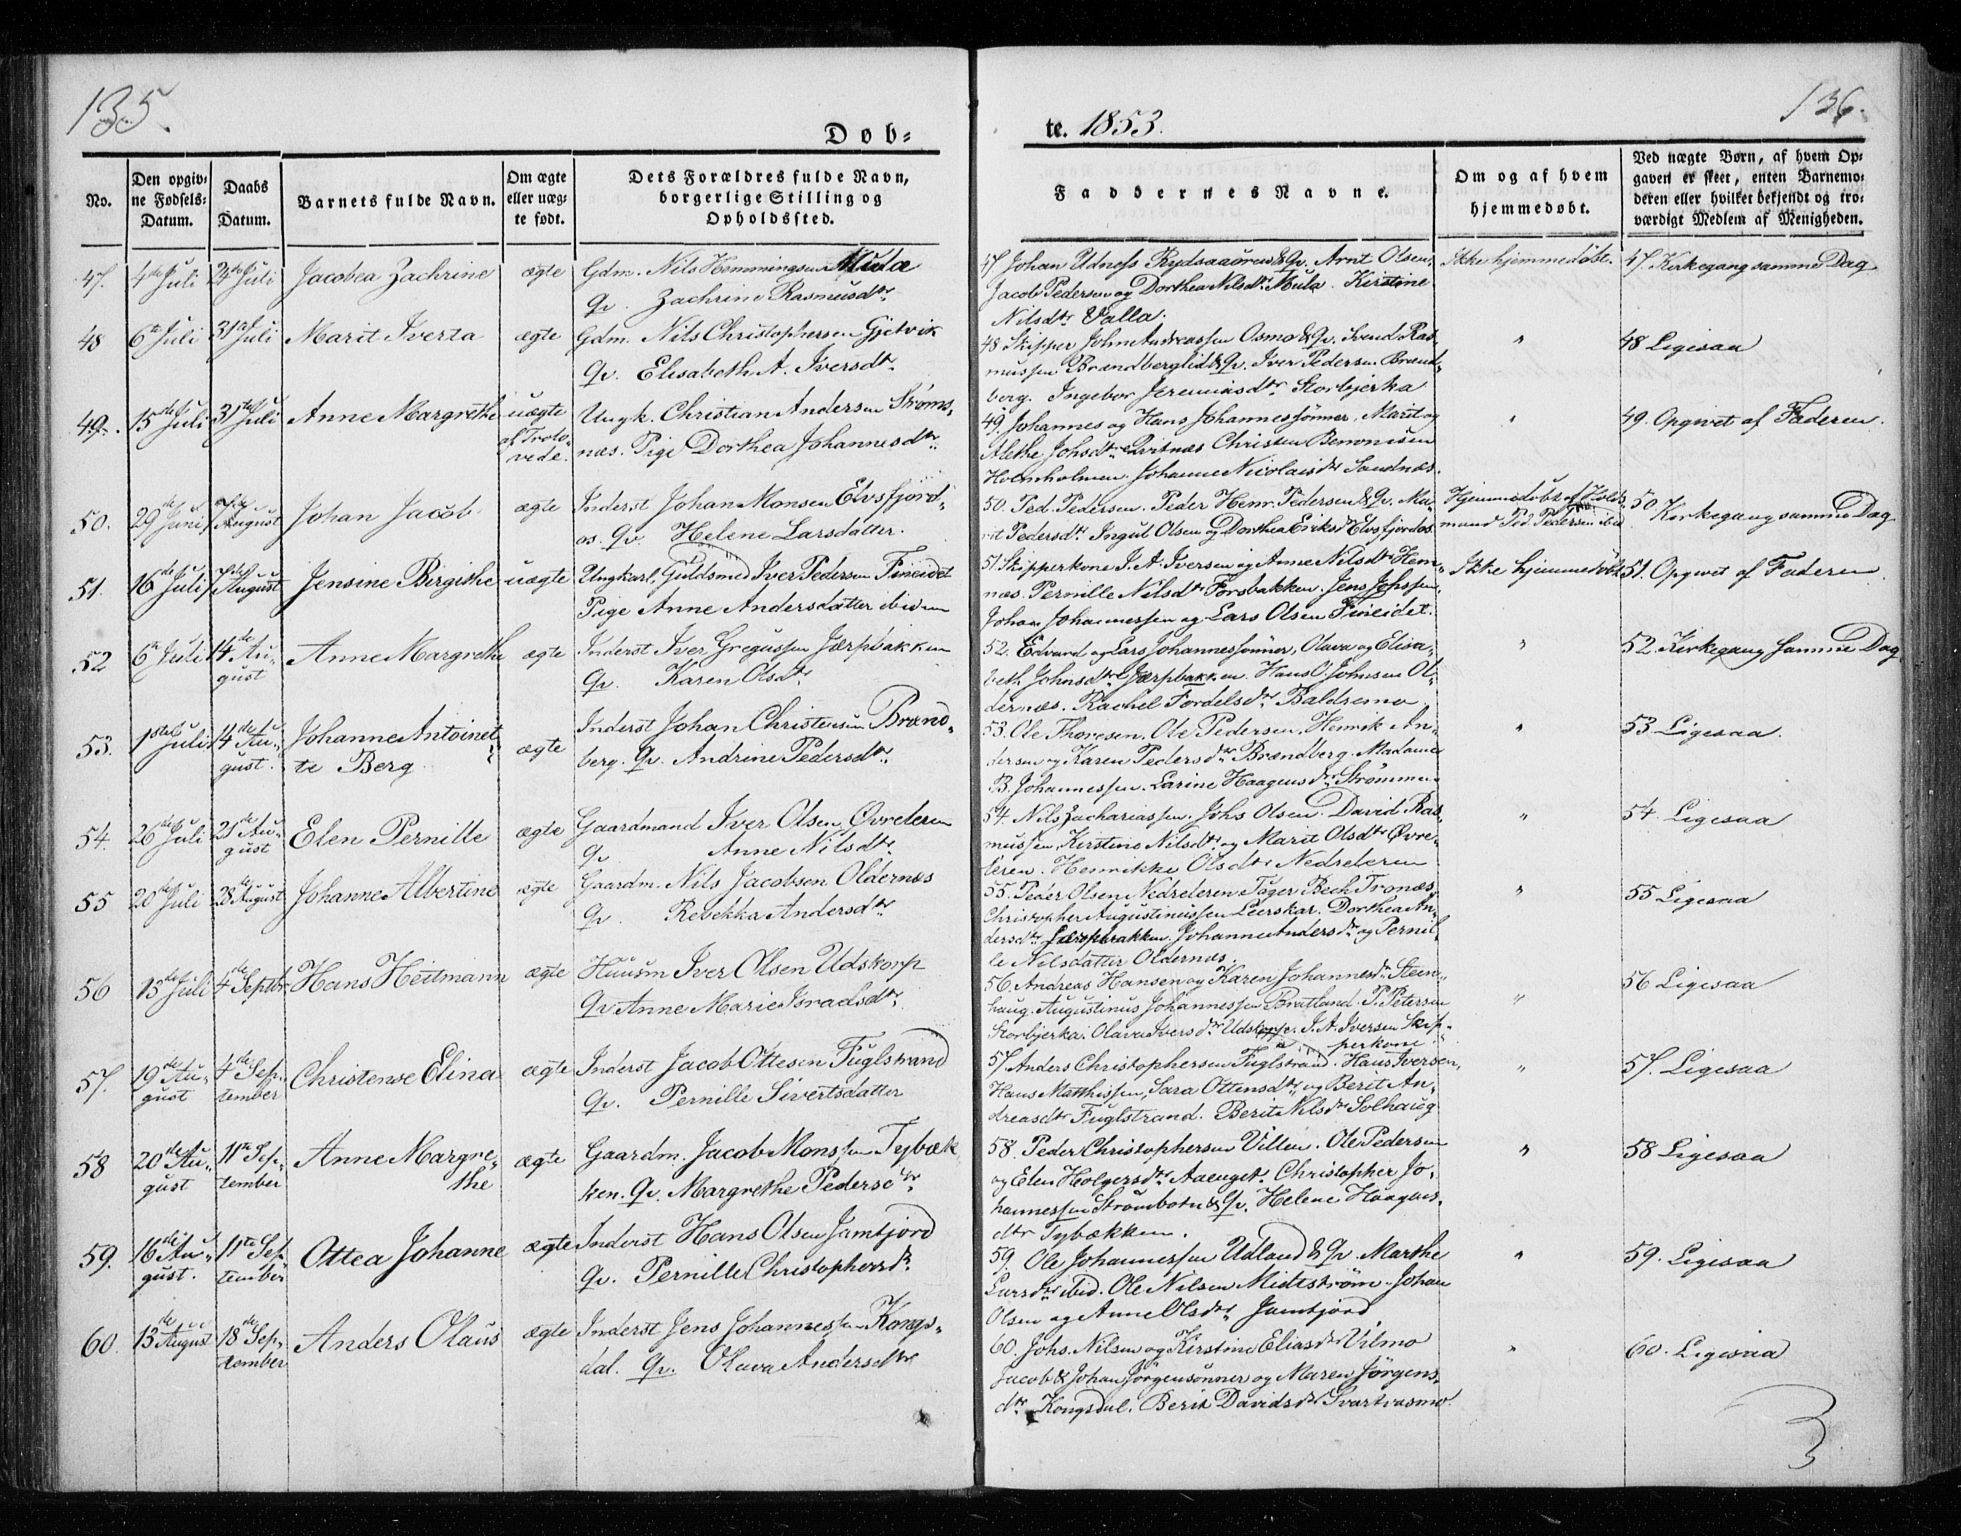 135.
136.
Døb-
te. 1853.
No.
Den opgiv-
ne Fødsels-
Datum.
Daabs
Datum.
Barnets fulde Navn.
Om ægte
eller uæg-
te født.
Dets Forældres fulde Navn,
borgerlige Stilling og
Opholdssted.
Faddernes Navne.
Om og af hvem
hjemmedøbt.
Ved uægte Børn, af hvem Op-
gaven er skeet, enten Barnemo-
deren eller hvilket bekjendt og tro-
værdigt Medlem af Menigheden.
47. 4de Juli 24de Juli Jacobea Zachrine ægte Gdm. Nils Hemmingsen Mula
Qv. Zachrine Rasmusdtr.
47 Johan Udnøss &Qv. Arnt Olsen,
Jacob Pedersen og Dorthea Nilsdtr Mula. Kirstine
Nilsdtr Valla.
Ikke hjemmedøbt. 47. Kirkegang samme Dag
48 6te Juli 31te Juli Marit Iverta ægte Gdm. Nils Christophersen Gjetvik
Qv. Elisabeth A. Iversdtr.
48 Skipper John Andreassen Osmo &Qv. Svend Ras-
mussen Brændberglid &Qv. Iver Pedersen Brænd-
berg. Ingebor Jeremiasdtr Storbjerka
" 48 Ligesaa
49. 15de Juli 31te Juli Anne Margrethe uægte
af Trolo-
vede.
Ungk. Christian Andersen Strøms-
næs. Pige Dorthea Johannesdtr.
49. Johannes og Hans Johannessønner, Marit og
Alethe Johsdtr Qvitnæs Christen Benonisen
Holmholmen. Johanne Nicolaisdr Sandnæs.
" 49. Opgivet af Faderen.
50. 29de Juni 7de August Johan Jacob ægte Inderst Johan Monsen Elvsfjord-
os. Qv. Helene Larsdatter.
50. Ped. Pedersen. Peder Henr. Pedersen &Qv. Ma-
rit Pedersdtr. Ingul Olsen og Dorthea Eriksdr Elvsfjordos.
Hjemmedøbt af
mand Ped. Pedersen ibid
50. Kirkegang samme Dag
51. 16de Juli 7de August Jensine Birgithe uægte Ungkarl, Guldsmed Iver Pedersen Fineidet
Pige Anne Andersdatter ibidem
51. Skipperkone J. A. Iversen og Anne Nilsdtr Hem-
næs. Pernille Nilsdtr Forsbakken. Jens Johssen,
Johan Johannessen og Lars Olsen Fineidet.
Ikke hjemmedøbt 51. Opgivet af Faderen.
52 6te Juli 14de Au-
gust
Anne Margrethe ægte Inderst Iver Gregussen Jærpbakken
Qv. Karen Olsdtr
52. Edvard og Lars Johannessønner, Olava og Elisa-
beth Johnsdtre Jærpbakken. Hans O. Johnsen Ol-
dernæs. Rachel Fordelsdr Baldsemo
" 52. Kirkegang samme Dag
53. 1ste Juli 14de Au-
gust.
Johanne Antoinet-
te Berg
ægte Inderst Johan Christensen Brænd-
berg. Qv. Andrine Pedersdtr
53. Ole Thoresen. Ole Pedersen. Henrik An-
dersen og Karen Pedersdtr Brændberg. Madame
B. Johannessen. Larine Haagensdr Strømmen
" 53 Ligesaa.
54. 26de Juli 21de Au-
gust
Elen Pernille ægte Gaardmand Iver Olsen Øvreleren
Qv Anne Nilsdtr.
54. Nils Zachariassen. Johs Olsen. David Ras-
mussen, Kirstine Nilsdtr og Marit Olsdtr Øvre-
leren. Henrikke Olsdtr Nedreleren
" 54. Ligesaa
55 20de Juli 28de August Johanne Albertine ægte Gaardm. Nils Jacobsen Oldernæs
Qv. Rebekka Andersdtr
55. Peder Olsen Nedreleren Tøger Bech Tranæs,
Christopher Augustinussen Leerskar. Dorthea An-
dersdtr Jærpbakken. Johanne Andersdr og Pernil-
le Nilsdatter Oldernæs.
" 55 Ligesaa
56 15de Juli 4de Septbr Hans Heitmann ægte Huusm Iver Olsen Udskorp
Qv Anne Marie Israelsdtr.
56. Andreas Hansen og Karen Johannesdr Steen-
haug. Augustinus Johannessen Bratland. P. Petersen
Storbjerka. Olava Iversdtr Udskorp. J. A. Iversen Skip-
perkone
" 56 Ligesaa
57. 19de Au-
gust
4de Sep-
tember
Christense Elina ægte Inderst Jacob Ottesen Fuglstrand
Qv. Pernille Sivertsdatter
57. Anders Christophersen Fuglstrand. Hans Iversen,
Hans Matthissen, Sara Ottensdtr og Berit An-
dreasdtr Fuglstrand. Berit Nilsdr Solhaug
" 57. Ligesaa
58 20de Au-
gust
11te Sep-
tember
Anne Margre-
the
ægte Gaardm. Jacob Monssen Tybæk-
ken. Qv. Margrethe Pedersdtr.
58. Peder Christophersen Villen. Ole Pedersen
og Elen Holgersdtr Aaenget. Christopher Jo-
hannessen Strømbotn &Qv. Helene Haagens-
dtr Tybækken.
" 58 Ligesaa
59. 16de Au-
gust.
11te Sep-
tember
Ottea Johanne ægte Inderst Hans Olsen Jamtjord
Qv. Pernille Christophersdr.
59. Ole Johannessen Udland &Qv. Marthe
Larsdtr ibid. Ole Nilsen Midtstrøm. Johan
Olsen og Anne Olsdtr Jamtjord
" 59. Ligesaa
60. 13de August 18de Sep-
tember
Anders Olaus ægte Inderst Jens Johannessen Kongs-
dal. Qv. Olava Andersdtr
60. Johs. Nilsen og Kirstine Eliasdr Vilmo
Jacob & Johan Jørgensønner og Maren Jørgens-
dtr Kongsdal. Berit Davidsdtr Svartvasmo.
" 60. Ligesaa